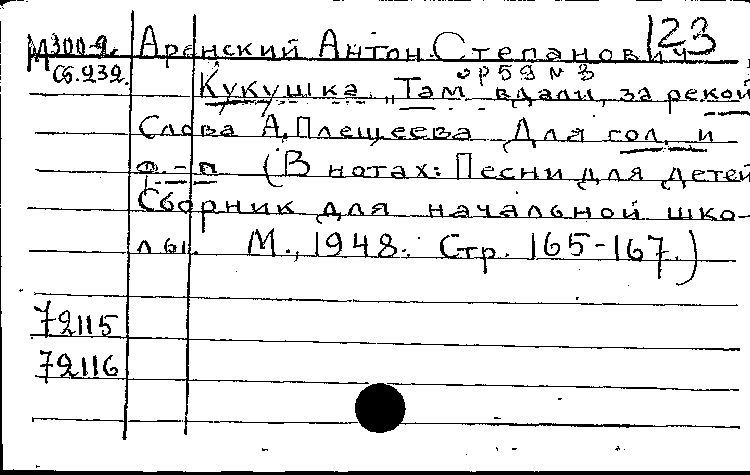 123
М 300-9. Аренский Антон Степанович
Сб.232. ор 59 № 3
Кукушка. „Там вдали, за рекой
Слова А. Плещеева Для гол. и
ф.-п. (В нотах: Песни для детей
Сборник для начальной шко-
лы. М., 1948. Стр. 165-167.)
72115
72116